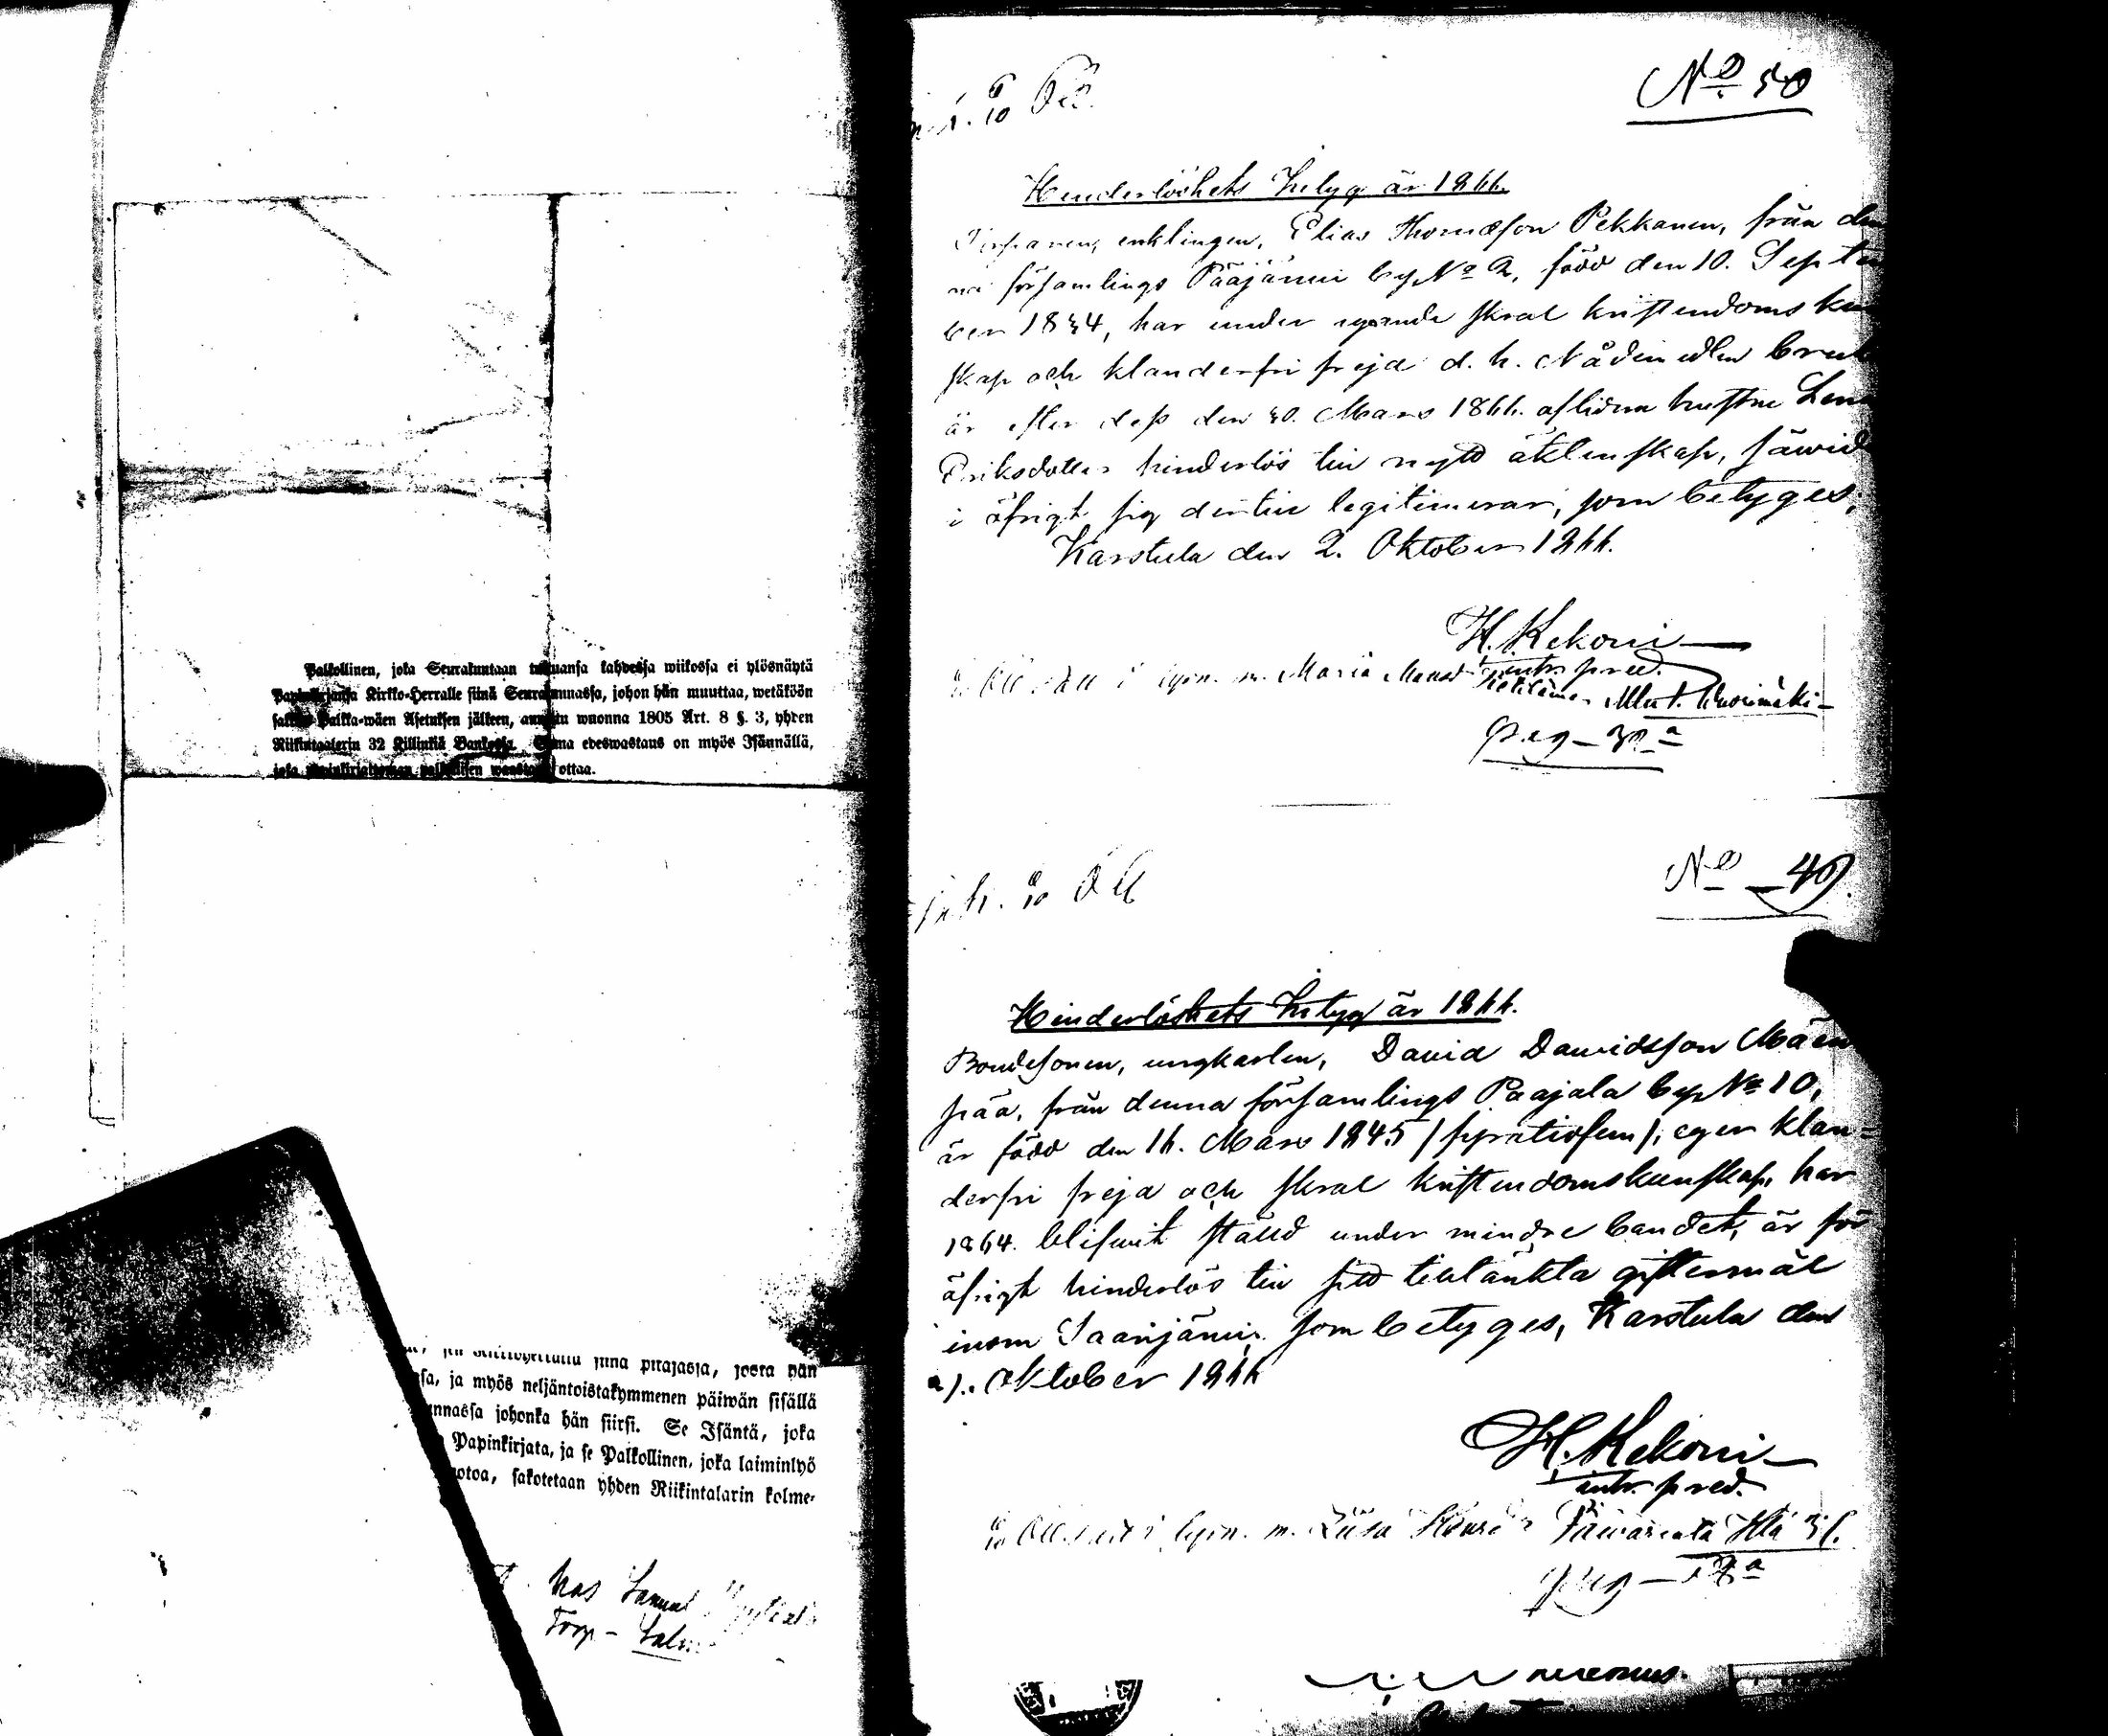 Palkollinen, joka Seurakuntaan tultuansa kahdessa wiikossa ei ylösnäytä
Papinkirjansa Kirkko-Herralle siinä Seurakunnassa, johon hän muuttaa, wetäköön
sakkoa Palkka-wäen Asetuksen jälkeen, annettu wuonna 1805 Art. 8 §. 3, yhden
Riikintaalerin 32 Killinkiä Bankossa. Sama edeswastaus on myös Isännällä,
joka papinkirjattoman palkollisen wastaan ottaa.
siinä pitäjässä, josta hän
ja myös neljäntoistakymmenen päiwän sisällä
johonka hän siirsi. Se Isäntä, joka
Papinkirjata, ja se Palkollinen, joka laiminlyö
sakotetaan yhden Riikintalarin kolme-
hos
Torp-
No 50
Hinderlöshets betyg år 1866.
enklingen, Elias Thomasson Pekkanen, från den
na församlings Pääjärwi by No 2, född den 10. Septem
ber 1834, har under egande skral kristendoms kun
skap och klanderfri frejd d. h. Nådemedlen bruk
är efter dess den 30. Mars 1866. aflidna hustru Lena
Eriksdotter hinderlös till nytt äktenskap, såwid
i öfrigt sig dertill legitimerar, som betyges;
Karstula den 2. Oktober 1866.
H. Kekoni
intr. pred.
m. Maria
pag-
No 49.
Hinderlöshets betyg år 1866.
Bondesonen, ungkarlen, David Dawidsson Mäen
pää, från denna församlings Paajala by No 10,
är född den 16. Mars 1845 /fyratiofem/; eger klan=
derfri frejd och skral kristendomskunskap, har
1864. blifwit ställd under mindre bandet, är för
öfrigt hinderlös till sitt tilltänkta giftermål
inom Saarijärwi, som betyges, Karstula den
Oktober 1866
H. Kekoni
intr. pred.
m. Liisa
pag-